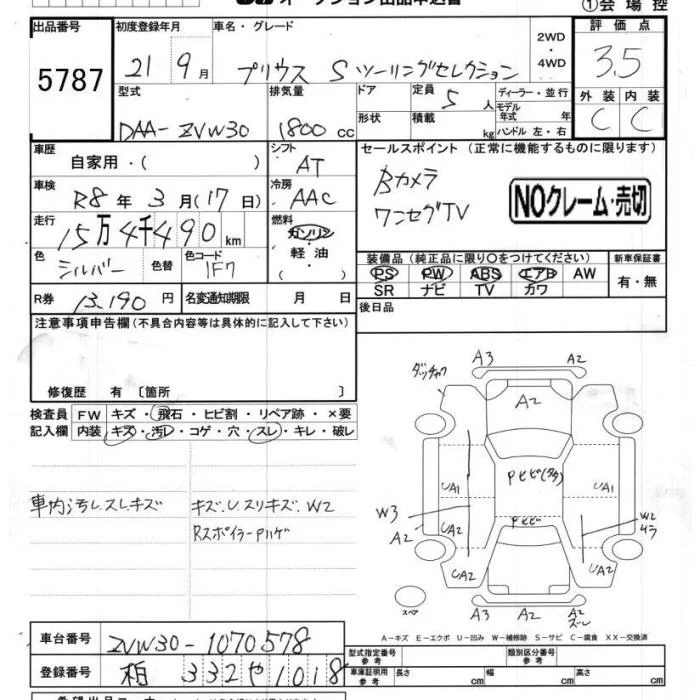 オークション出品申込書
①会場控
出品番号 初度登録年月 車名・グレード 2WD・4WD 評価点
5787 21 9月 プリウス Sツーリングセレクション 3.5
型式 排気量 ドア 定員 5人 ディーラー・並行 外装 内装
DAA-ZVW30 1800cc 形状 積載 kg モデル年式 年 ハンドル 左・右 C C
車歴 自家用・( ) シフト AT セールスポイント (正常に機能するものに限ります)
車検 R8年3月(17日) 冷房 AAC Bカメラ
ワンセグTV NOクレーム・売切
走行 15万4千490km 燃料 ガソリン・軽油・( )
色 シルバー 色替 色コード 1F7
装備品 (純正品に限り〇をつけてください) 新車保証書
PS PW ABS エアB AW 有・無
SR ナビ TV カワ
R券 13,190円 名変通知期限 月 日 後日品
注意事項申告欄 (不具合内容等は具体的に記入して下さい)
修復歴 有 〔箇所 〕
検査員 FW キズ・飛石・ヒビ割・リペア跡・×要
記入欄 内装 キズ・汚レ・コゲ・穴・スレ・キレ・破レ
車内汚レスレキズ キズ.U.スリキズ.W2
RスポイラーPハゲ
A3 A2
ダッチャク
A2
Pヒビ
UA1 UA1
Pヒビ
W3 W2
A2 UA2
UA2 UA2
スペア A3 A2 A2
A-キズ E-エクボ U-凹み W-補修跡 S-サビ C-腐食 XX-交換済
車台番号 ZVW30-1070578
登録番号 柏 332や1018
型式指定番号 参考 類別区分番号 参考
車庫証明用 参考 長さ cm 幅 cm 高さ cm
希望出品コーナー